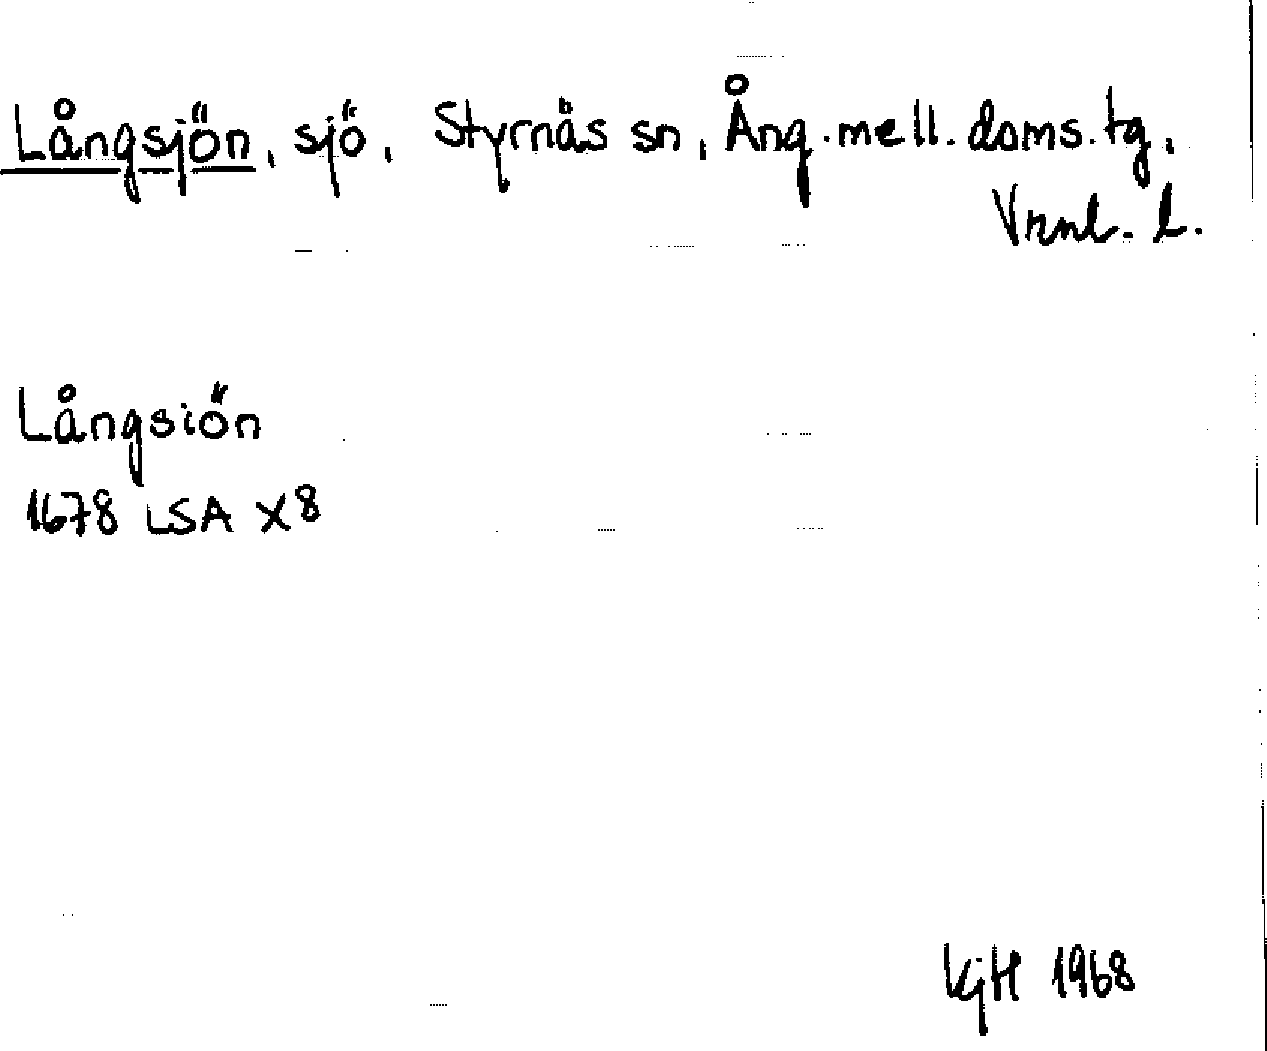 Långsjön, sjö, Styrnäs sn, Ång. mell. doms. tg,
Vrnl. l.
Långsiön
1678 LSA X8
KjH 1968